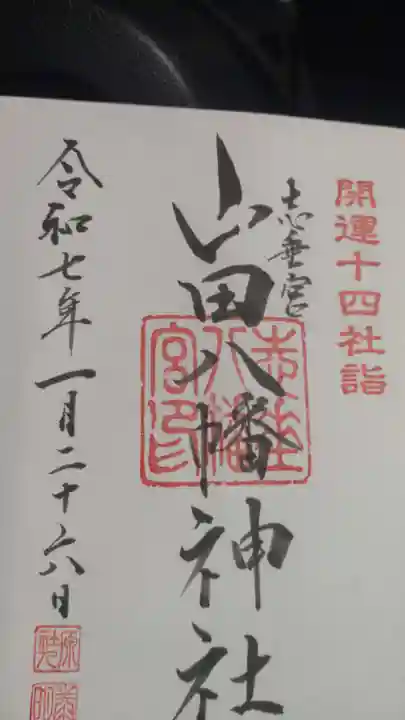 開運十四社詣
志垂宮
山田八幡神社
令和七年一月二十六日